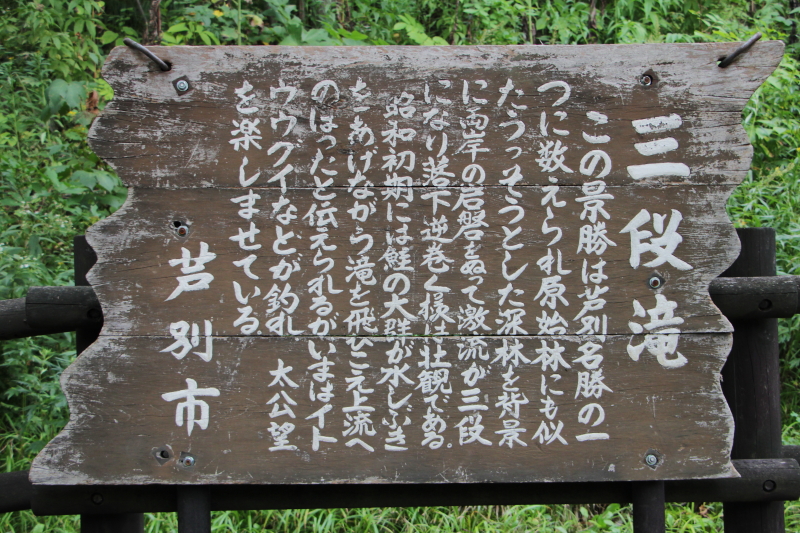 三段滝
この景勝は芦別名勝の一
つに数えられ原始林にも似
たうっそうとした深林を背景
に両岸の岩盤をぬって激流が三段
になり落下逆巻く様は壮観である.
昭和初期には鮭の大群が水しぶき
をあげながら滝を飛びこえ上流へ
のぼったと伝えられるがいまはイト
ウウグイなどが釣れ 太公望
を楽しませている
芦別市